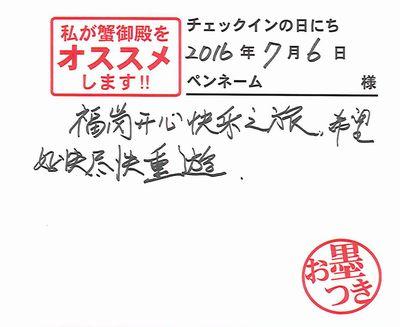 私が蟹御殿を
オススメ
します!!
チェックインの日にち
2016年7月6日
ペンネーム 様
福岗开心快乐之旅,希望
尽快重遊.
お墨
つき